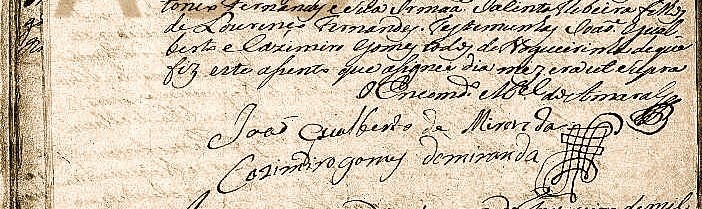 tonio Fernandes e sua Irmaã Jasinta Ribeira filhos
de Lourenço Fernandes, Testemunhas João Gual-
berto e Cazimiro Gomes todos de Nogueirinha de que
fiz este asento que asignei dia mez era ut supra
O Encomdo Mel do Amaral
João Gualberto de Miranda
Cazimiro gomes demiranda